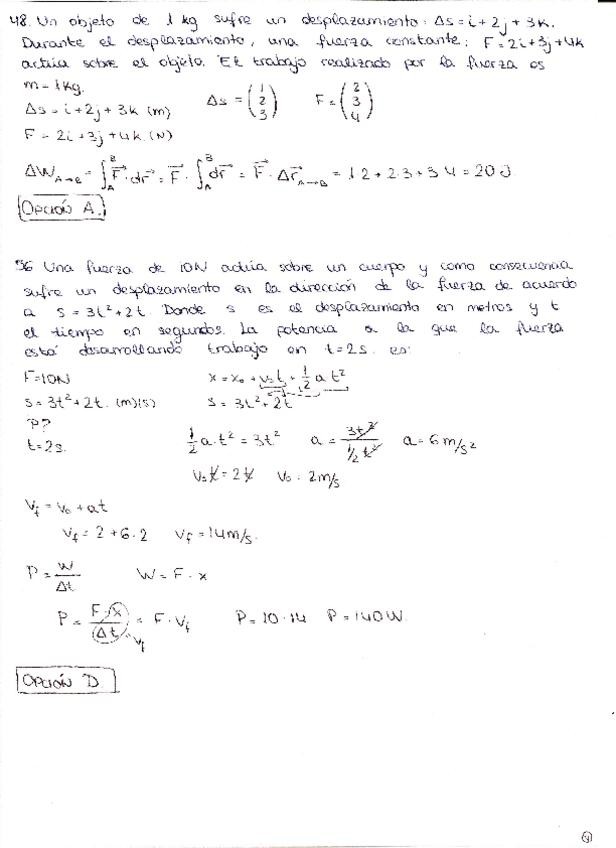 48. Un objeto de 1 kg sufre un desplazamiento: Δs = i + 2j + 3k.
Durante el desplazamiento, una fuerza constante: F = 2i + 3j + 4k
actúa sobre el objeto. El trabajo realizado por la fuerza es
m = 1 kg.
Δs = i + 2j + 3k (m)   Δs = (1 2 3)   F = (2 3 4)
F = 2i + 3j + 4k (N)
ΔW A→B = ∫_A^B F⃗ · dr⃗ = F⃗ · ∫_A^B dr⃗ = F⃗ · Δr⃗ A→B = 1·2 + 2·3 + 3·4 = 20 J.
OPCIÓN A.
56 Una fuerza de 10N actúa sobre un cuerpo y como consecuencia
sufre un desplazamiento en la dirección de la fuerza de acuerdo
a s = 3t² + 2t Donde s es el desplazamiento en metros y t
el tiempo en segundos. La potencia a la que la fuerza
está desarrollando trabajo en t = 2s. es:
F = 10N   x = x₀ + v₀t + 1/2 a t²
s = 3t² + 2t. (m)(s)   s = 3t² + 2t
P?
t = 2s.   1/2 a · t² = 3t²   a = 3t² / 1/2 t²   a = 6 m/s²
v₀t = 2t   v₀ = 2m/s
Vf = V₀ + at
Vf = 2 + 6·2   Vf = 14 m/s.
P = W/Δt   W = F · x
P = F·x/Δt = F · Vf   P = 10·14   P = 140 W.
Vf
OPCIÓN D